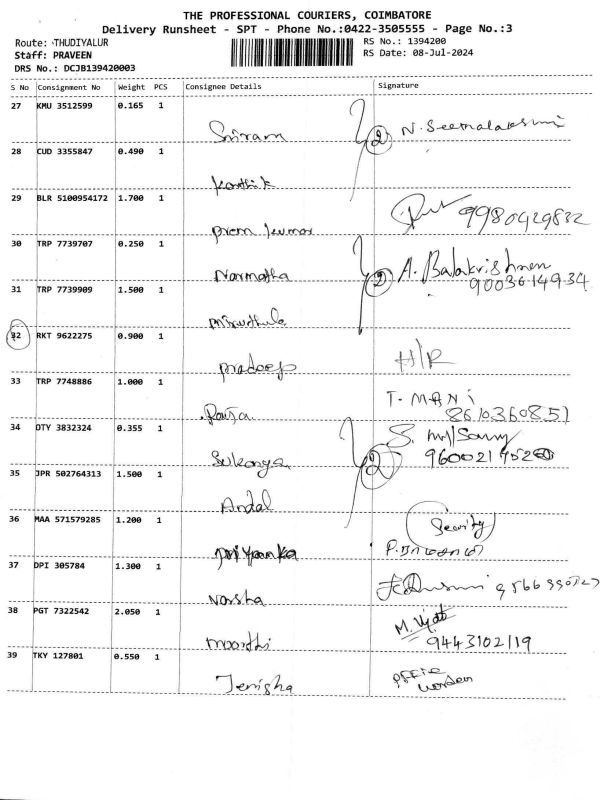 THE PROFESSIONAL COURIERS, COIMBATORE
Delivery Runsheet - SPT - Phone No.:0422-3505555 - Page No.:3
Route: THUDIYALUR
RS No.: 1394200
Staff: PRAVEEN
RS Date: 08-Jul-2024
DRS No.: DCJB139420003
S No Consignment No Weight PCS Consignee Details Signature
27 KMU 3512599 0.165 1
Sriram 2 N. Seethalakshmi
28 CUD 3355847 0.490 1
Karthik
29 BLR 5100954172 1.700 1
Prem kumar 9980429832
30 TRP 7739707 0.250 1
Narmatha 2 A. Balakrishnan
9003614934
31 TRP 7739909 1.500 1
Miruthula
32 RKT 9622275 0.900 1
Pradeep H/R
33 TRP 7748886 1.000 1
Raja T. MANI
8610360851
34 OTY 3832324 0.355 1
Sukanya 2
35 JPR 502764313 1.500 1
Andal
36 MAA 571579285 1.200 1
Priyanka Security
37 DPI 305784 1.300 1
Varsha
38 PGT 7322542 2.050 1
Moorthi 9443102119
39 TKY 127801 0.550 1
Jenisha office